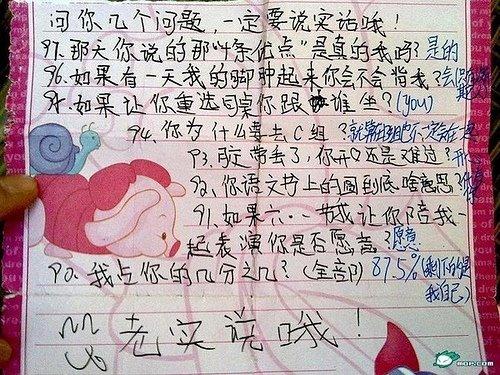 问你几个问题，一定要说实话哦！
97.那天你说的那"十条优点"是真的我吗？是的
96.如果有一天我的脚肿起来你会不会背我？会
95.如果让你重选同桌你跟谁坐？(you)
94.你为什么要去C组？
93.肯定带丢了，你开心还是难过？开
92.你语文书上的圆到底啥意思？
91.如果六·一节我让你陪我一
起表演你是否愿意？愿意
90.我占你的几分之几？(全部) 87.5%(剩下的是
我自己)
老实说哦！
mop.com